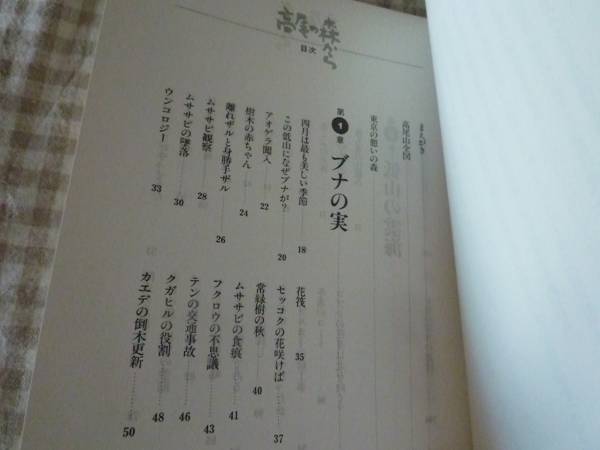 高尾の森から
目次
まえがき
高尾山全図
東京の憩いの森
第1章 ブナの実
四月は最も美しい季節 18
この低山になぜブナが? 20
アオゲラ闖入 22
樹木の赤ちゃん 24
離れザルと身勝手ザル 26
ムササビ観察 28
ムササビの墜落 30
ウンコロジー 33
花筏 35
セッコクの花咲けば 37
常緑樹の秋 40
ムササビの食痕 41
フクロウの不思議 43
テンの交通事故 46
クガビルの役割 48
カエデの倒木更新 50